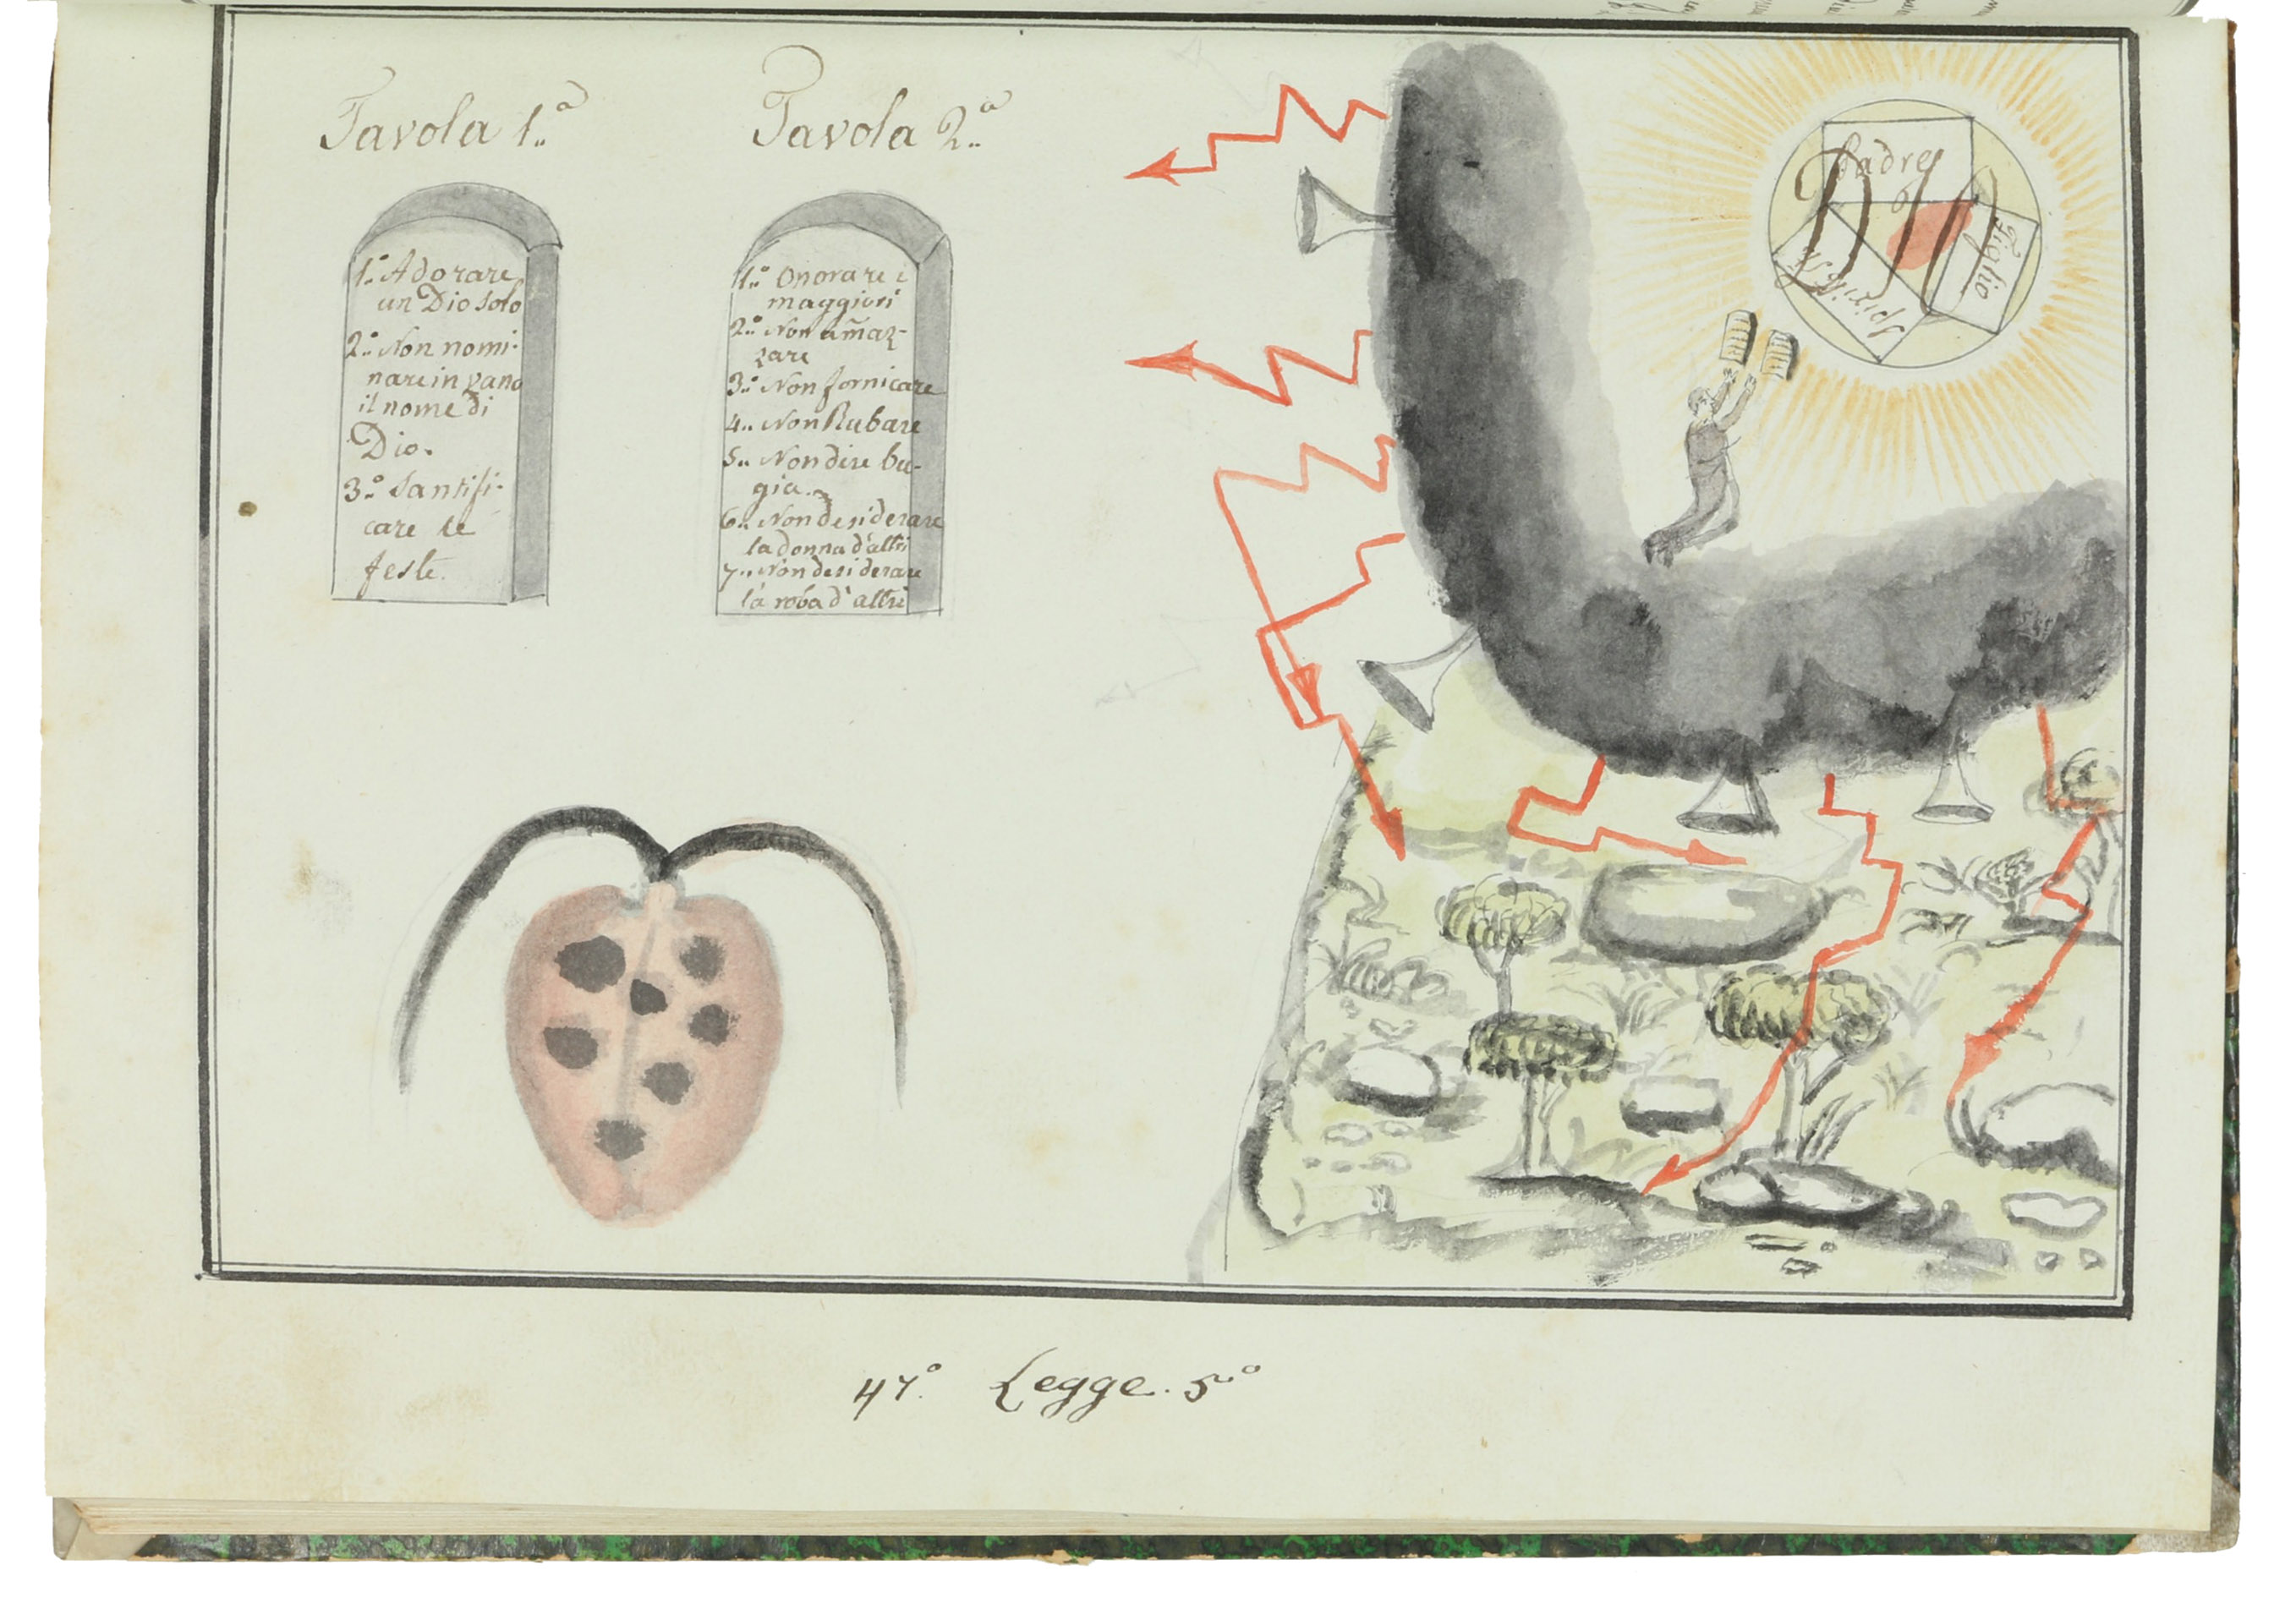 Tavola 1.ª
1.º Adorare
un Dio solo
2.º Non nomi-
nare in vano
il nome di
Dio.
3.º Santifi-
care le
feste.
Tavola 2.ª
1.º Onorare i
maggiori
2.º Non am̃az-
zare
3.º Non fornicare
4.. Non Rubare
5.. Non dire bu-
gia.
6.. Non desiderare
la donna d'altri
7.. Non desiderare
la roba d'altri
Padre
DIO
Figlio
47.º Legge. 5.º